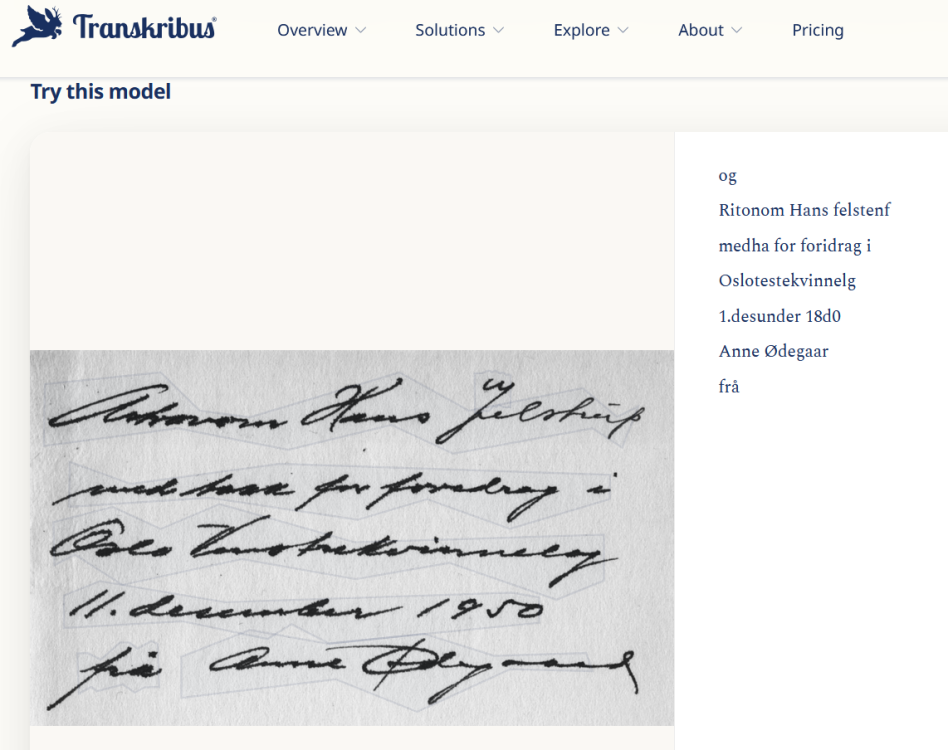 Transkribus®
Overview Solutions Explore About Pricing
Try this model
og
Ritonom Hans felstenf
medha for foridrag i
Oslotestekvinnelg
1.desunder 18d0
Anne Ødegaar
frå
Astronom Hans Jelstrup
med takk for foredrag i
Oslo Venstrekvinnelag
11. desember 1950
frå Anne Ødegaard